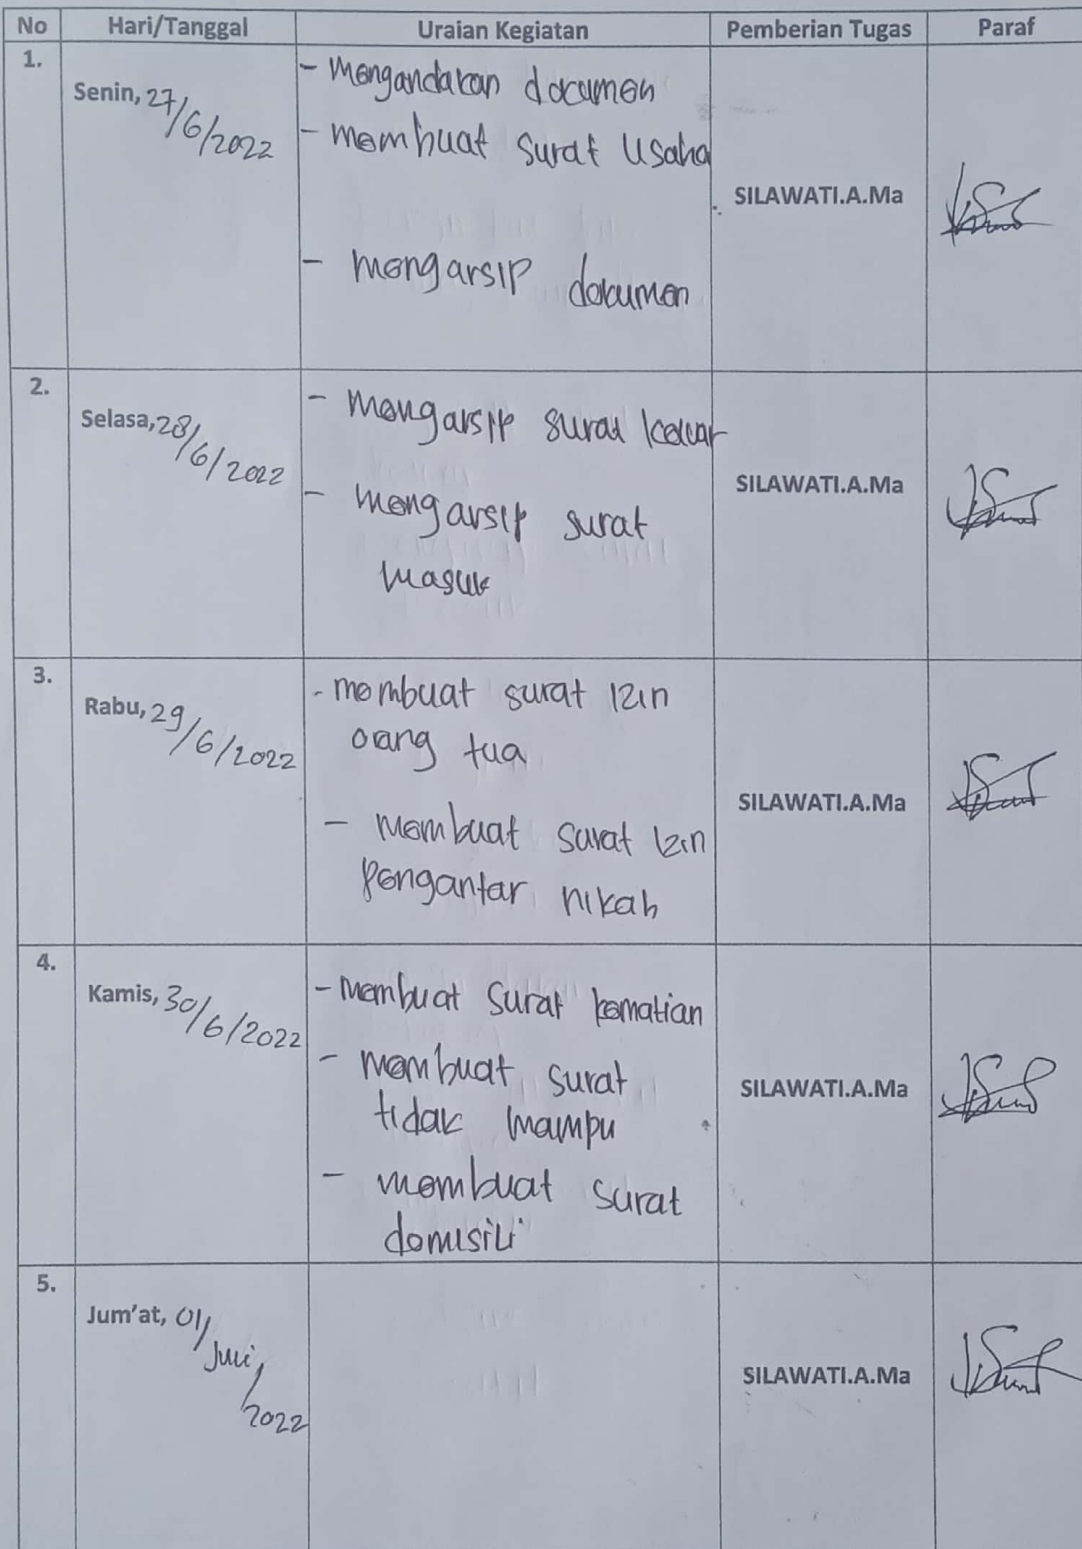 No Hari/Tanggal Uraian Kegiatan Pemberian Tugas Paraf
1.
Senin, 27/6/2022
- mengandakan documen
- membuat surat usaha
- mengarsip dokumen
SILAWATI.A.Ma
2.
Selasa, 28/6/2022
- mengarsip surat keluar
- mengarsip surat
masuk
SILAWATI.A.Ma
3.
Rabu, 29/6/2022
- membuat surat izin
orang tua
- membuat surat izin
pengantar nikah
SILAWATI.A.Ma
4.
Kamis, 30/6/2022
- membuat surat kematian
- membuat surat
tidak mampu
- membuat surat
domisili
SILAWATI.A.Ma
5.
Jum'at, 01/Juli/2022
SILAWATI.A.Ma